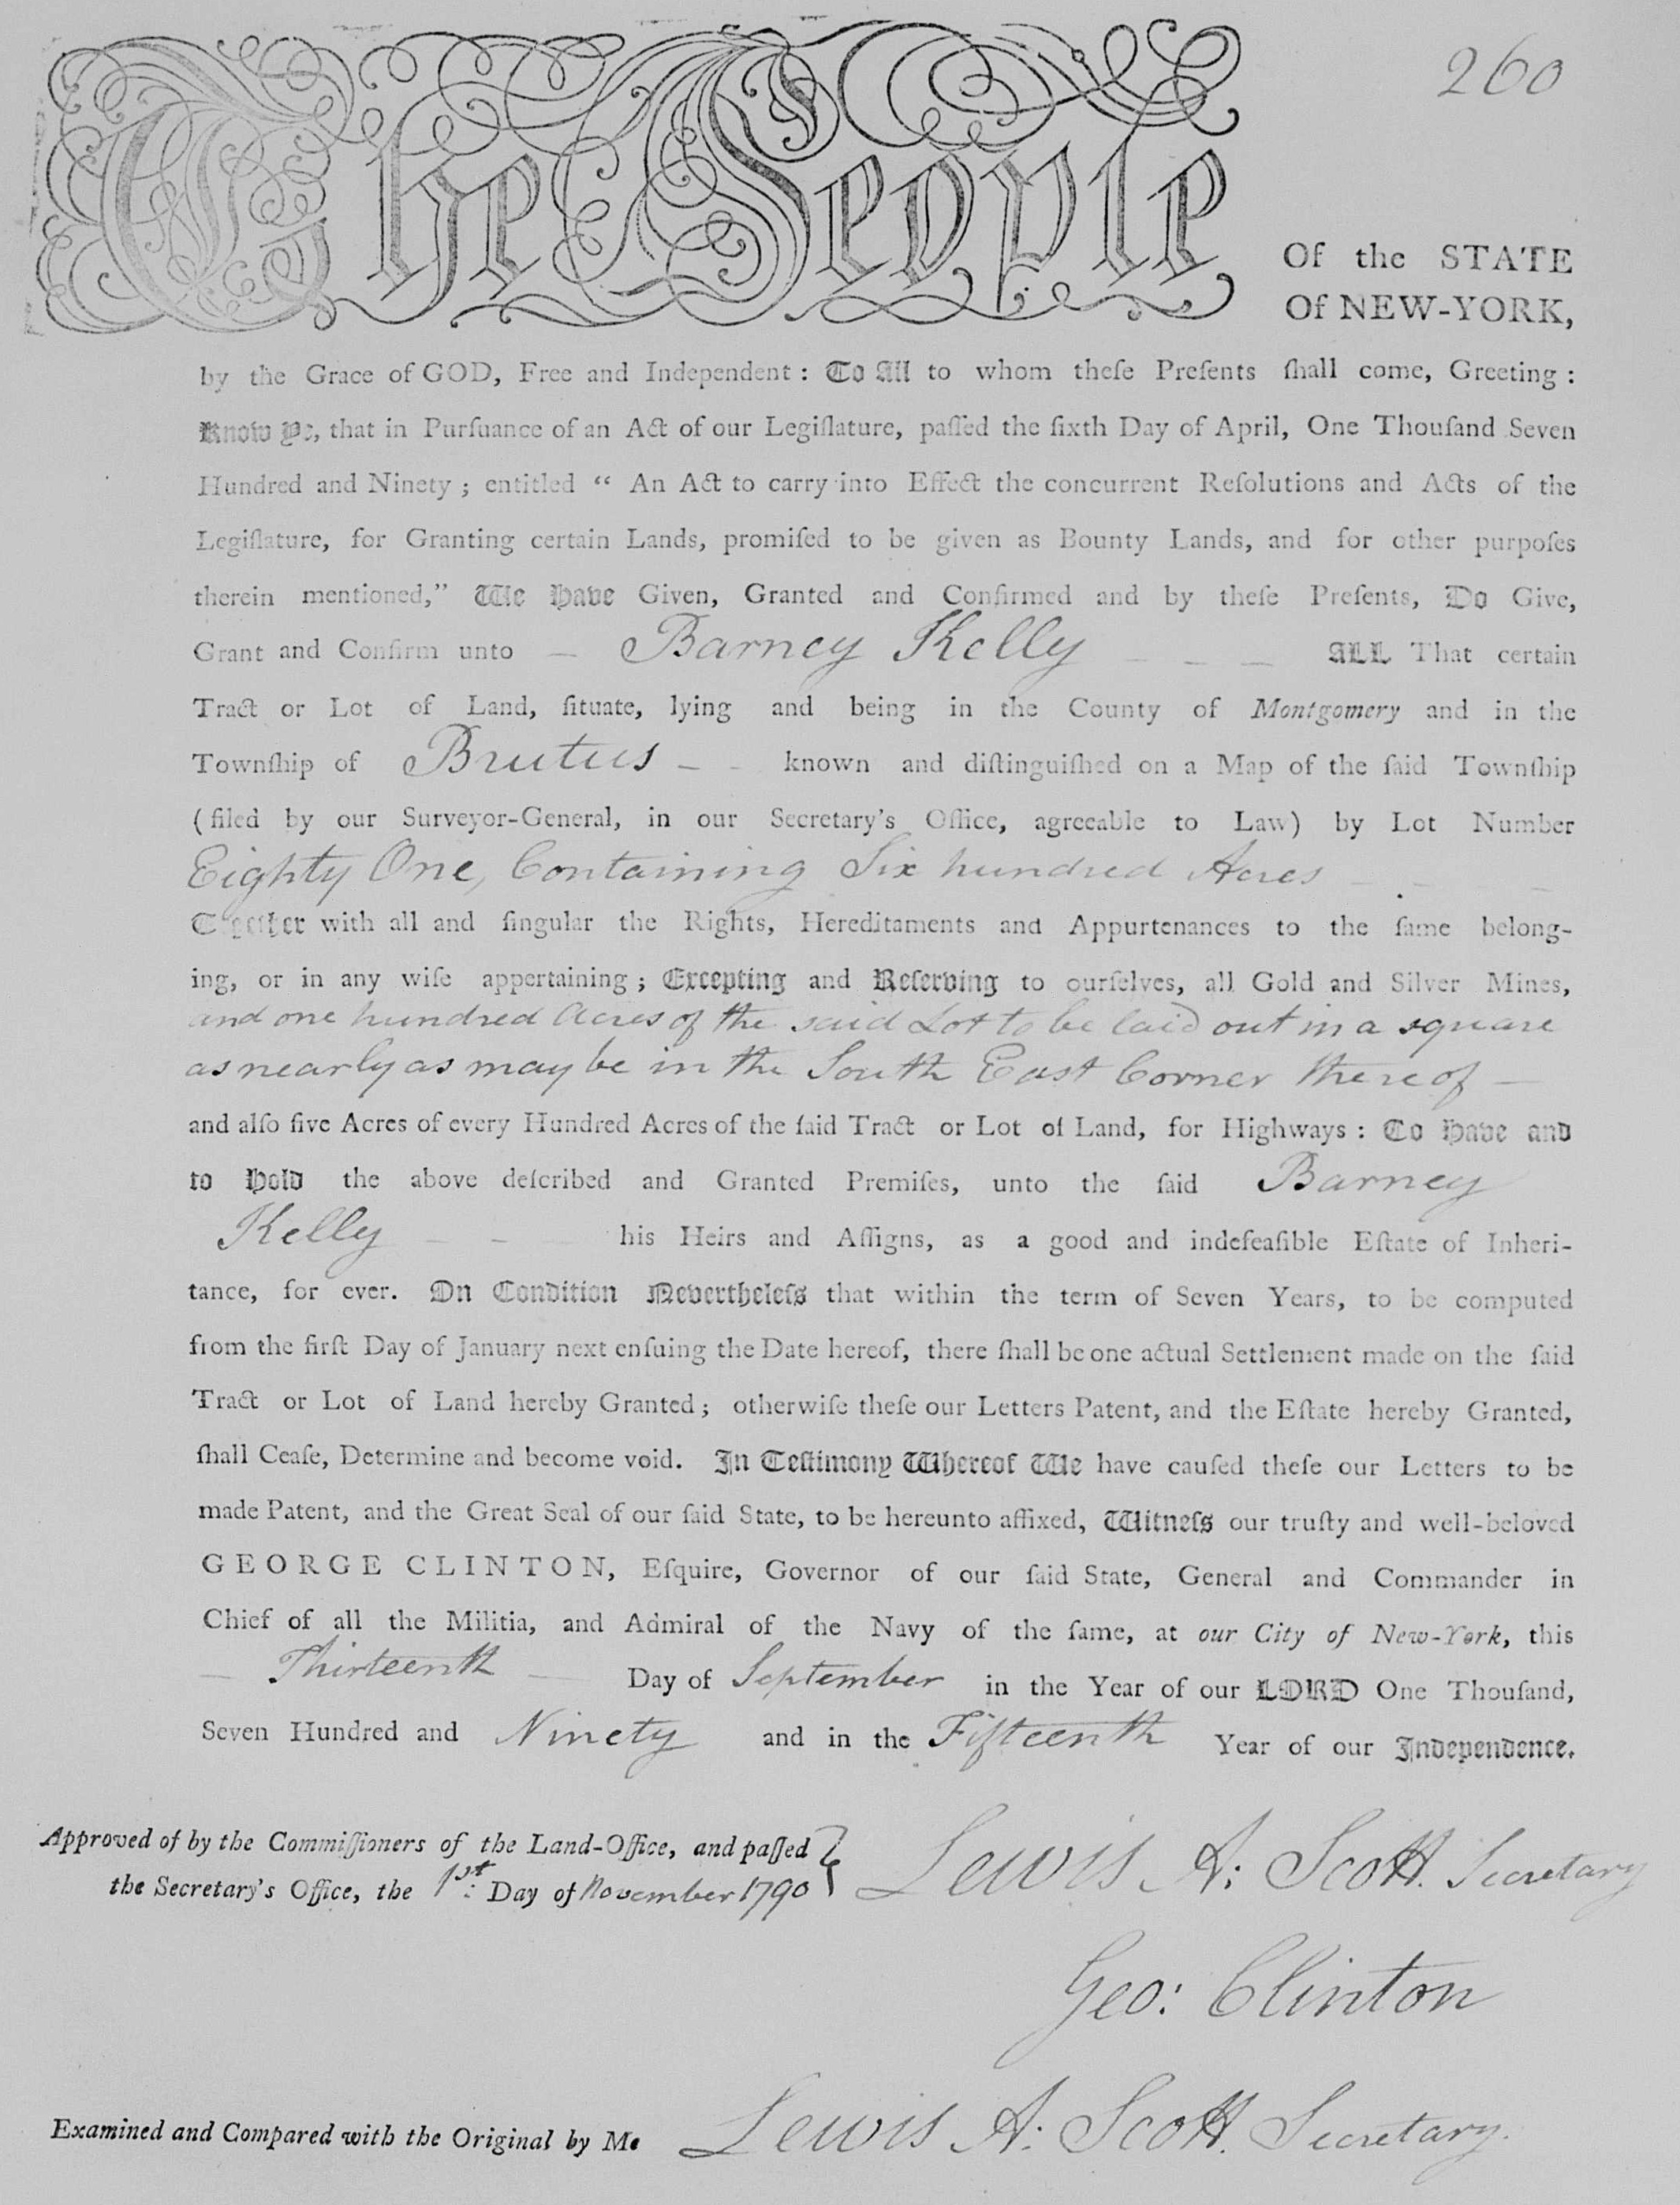 260
The People
Of the STATE
Of NEW-YORK,
by the Grace of GOD, Free and Independent : To All to whom theſe Preſents ſhall come, Greeting :
Know Ye, that in Purſuance of an Act of our Legiſlature, paſſed the ſixth Day of April, One Thouſand Seven
Hundred and Ninety ; entitled “ An Act to carry into Effect the concurrent Reſolutions and Acts of the
Legiſlature, for Granting certain Lands, promiſed to be given as Bounty Lands, and for other purpoſes
therein mentioned,” We Have Given, Granted and Confirmed and by theſe Preſents, Do Give,
Grant and Confirm unto — Barney Kelly — — — ALL That certain
Tract or Lot of Land, ſituate, lying and being in the County of Montgomery and in the
Townſhip of Brutus - - known and diſtinguiſhed on a Map of the ſaid Townſhip
(filed by our Surveyor-General, in our Secretary's Office, agreeable to Law) by Lot Number
Eighty One, Containing Six hundred Acres
Together with all and ſingular the Rights, Hereditaments and Appurtenances to the ſame belong-
ing, or in any wiſe appertaining ; Excepting and Reſerving to ourſelves, all Gold and Silver Mines,
and one hundred Acres of the said Lot to be laid out in a square
as nearly as may be in the South East Corner thereof —
and alſo five Acres of every Hundred Acres of the ſaid Tract or Lot of Land, for Highways : To Have and
to Hold the above deſcribed and Granted Premiſes, unto the ſaid Barney
Kelly - - his Heirs and Aſſigns, as a good and indefeaſible Eſtate of Inheri-
tance, for ever. On Condition Nevertheleſs that within the term of Seven Years, to be computed
from the firſt Day of January next enſuing the Date hereof, there ſhall be one actual Settlement made on the ſaid
Tract or Lot of Land hereby Granted ; otherwiſe theſe our Letters Patent, and the Eſtate hereby Granted,
ſhall Ceaſe, Determine and become void. In Teſtimony Whereof We have cauſed theſe our Letters to be
made Patent, and the Great Seal of our ſaid State, to be hereunto affixed, Witneſs our truſty and well-beloved
GEORGE CLINTON, Eſquire, Governor of our ſaid State, General and Commander in
Chief of all the Militia, and Admiral of the Navy of the ſame, at our City of New-York, this
— Thirteenth — Day of September in the Year of our LORD One Thouſand,
Seven Hundred and Ninety and in the Fifteenth Year of our Independence.
Approved of by the Commiſſioners of the Land-Office, and paſſed
the Secretary's Office, the 1st: Day of November 1790
Lewis A: Scott. Secretary
Geo: Clinton
Examined and Compared with the Original by Me Lewis A: Scott. Secretary.